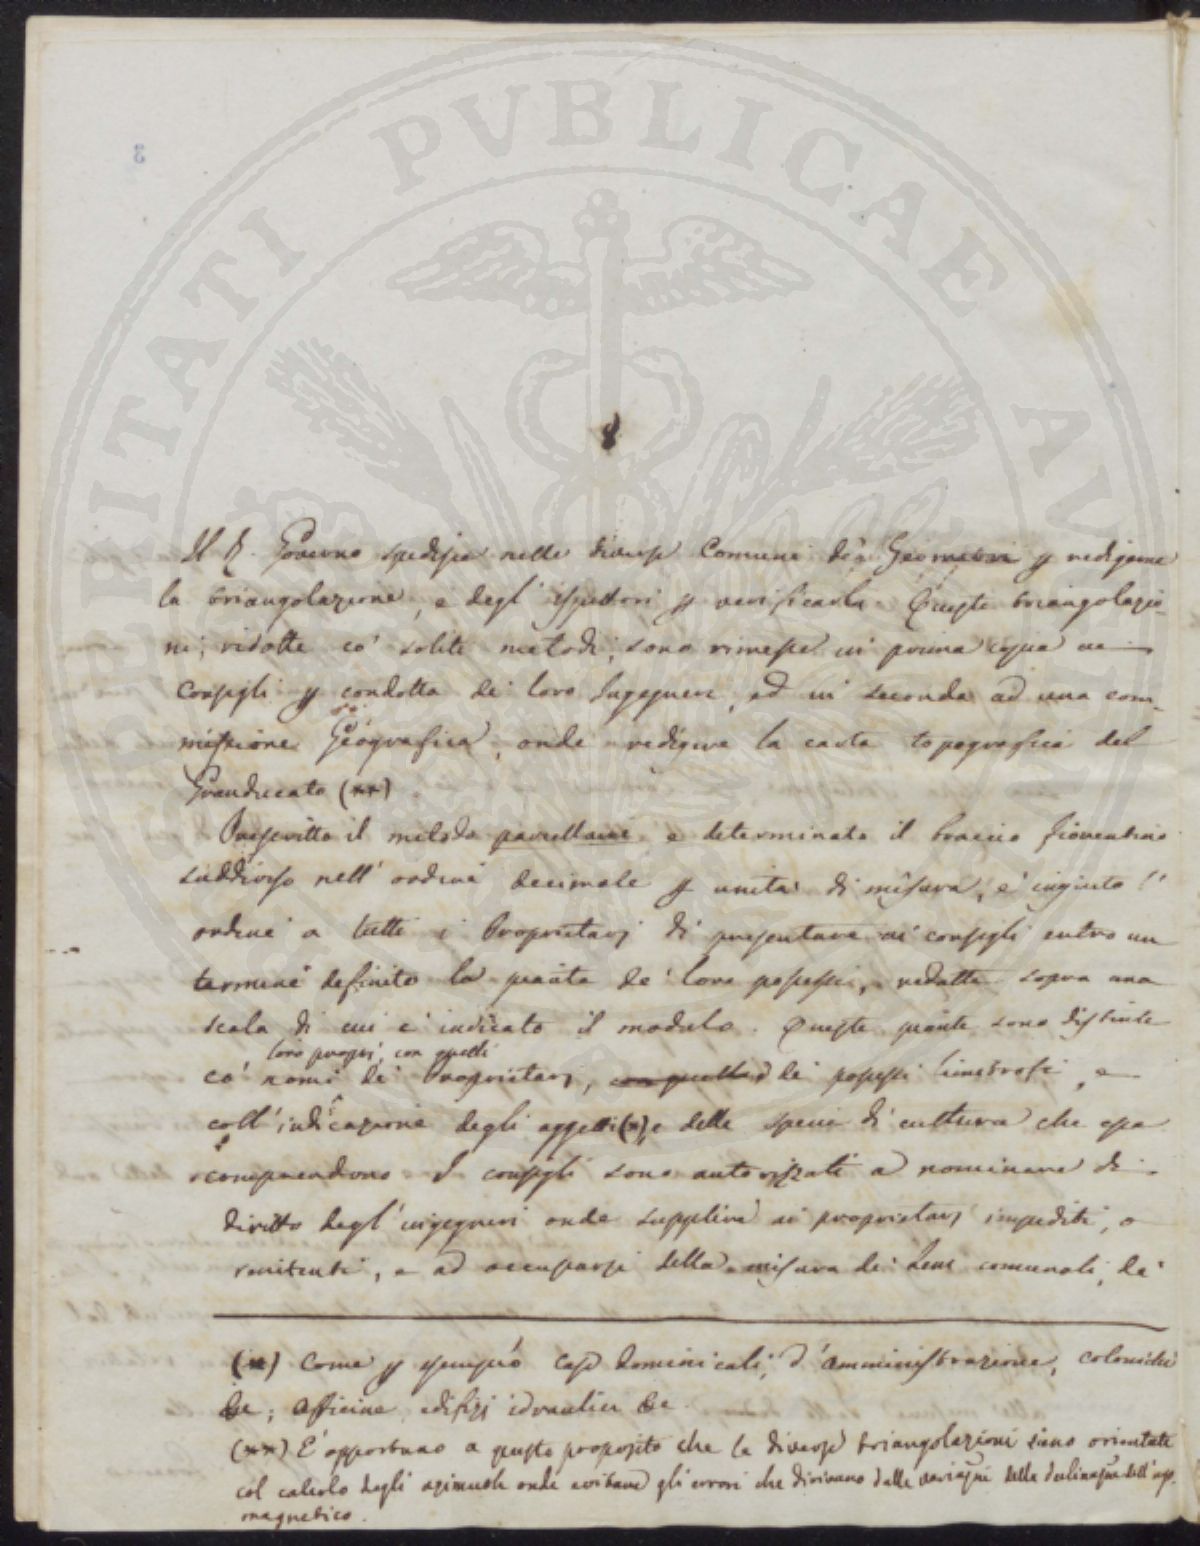 PROSPERITATI PVBLICAE AVGENDAE
3
8
Il R. Governo spedisce nelle diverse Comuni dei Geometri p redigerne
la triangolazione, e degl' ispettori p verificarla. Queste triangolazio-
ni, ridotte co' soliti metodi, sono rimesse in prima copia ai
Consigli p condotta de' loro Ingegneri, ed in seconda ad una com-
missione Geografica, onde redigere la carta topografica del
Granducato (**)
Prescritto il metodo parcellare e determinato il braccio fiorentino
suddiviso nell' ordine decimale p unità di misura, è ingiunto l'
ordine a tutti i Proprietarj di presentare ai consigli entro un
termine definito la pianta de' loro possessi, redatta sopra una
scala di cui è indicato il modulo. Queste piante sono distinte
loro proprj, con quelli
co' nomi dei Proprietarj, con quelli dei possessi limitrofi, e
coll' indicazione degli oggetti (*), e delle specie di cultura che essa
comprendono. I consigli sono autorizzati a nominare di
diritto degl' ingegneri onde supplire ai proprietarj impediti, o
renitenti, e ad occuparsi della misura dei beni comunali, de'
(*) Come p esempio case dominicali, d' amministrazione, coloniche
&c; Officine, edifizj idraulici &c
(**) È opportuno a questo proposito che le diverse triangolazioni siano orientate
col calcolo degli azimuth onde evitare gli errori che dirivano dalle variazni della declinazne dell' ago
magnetico.